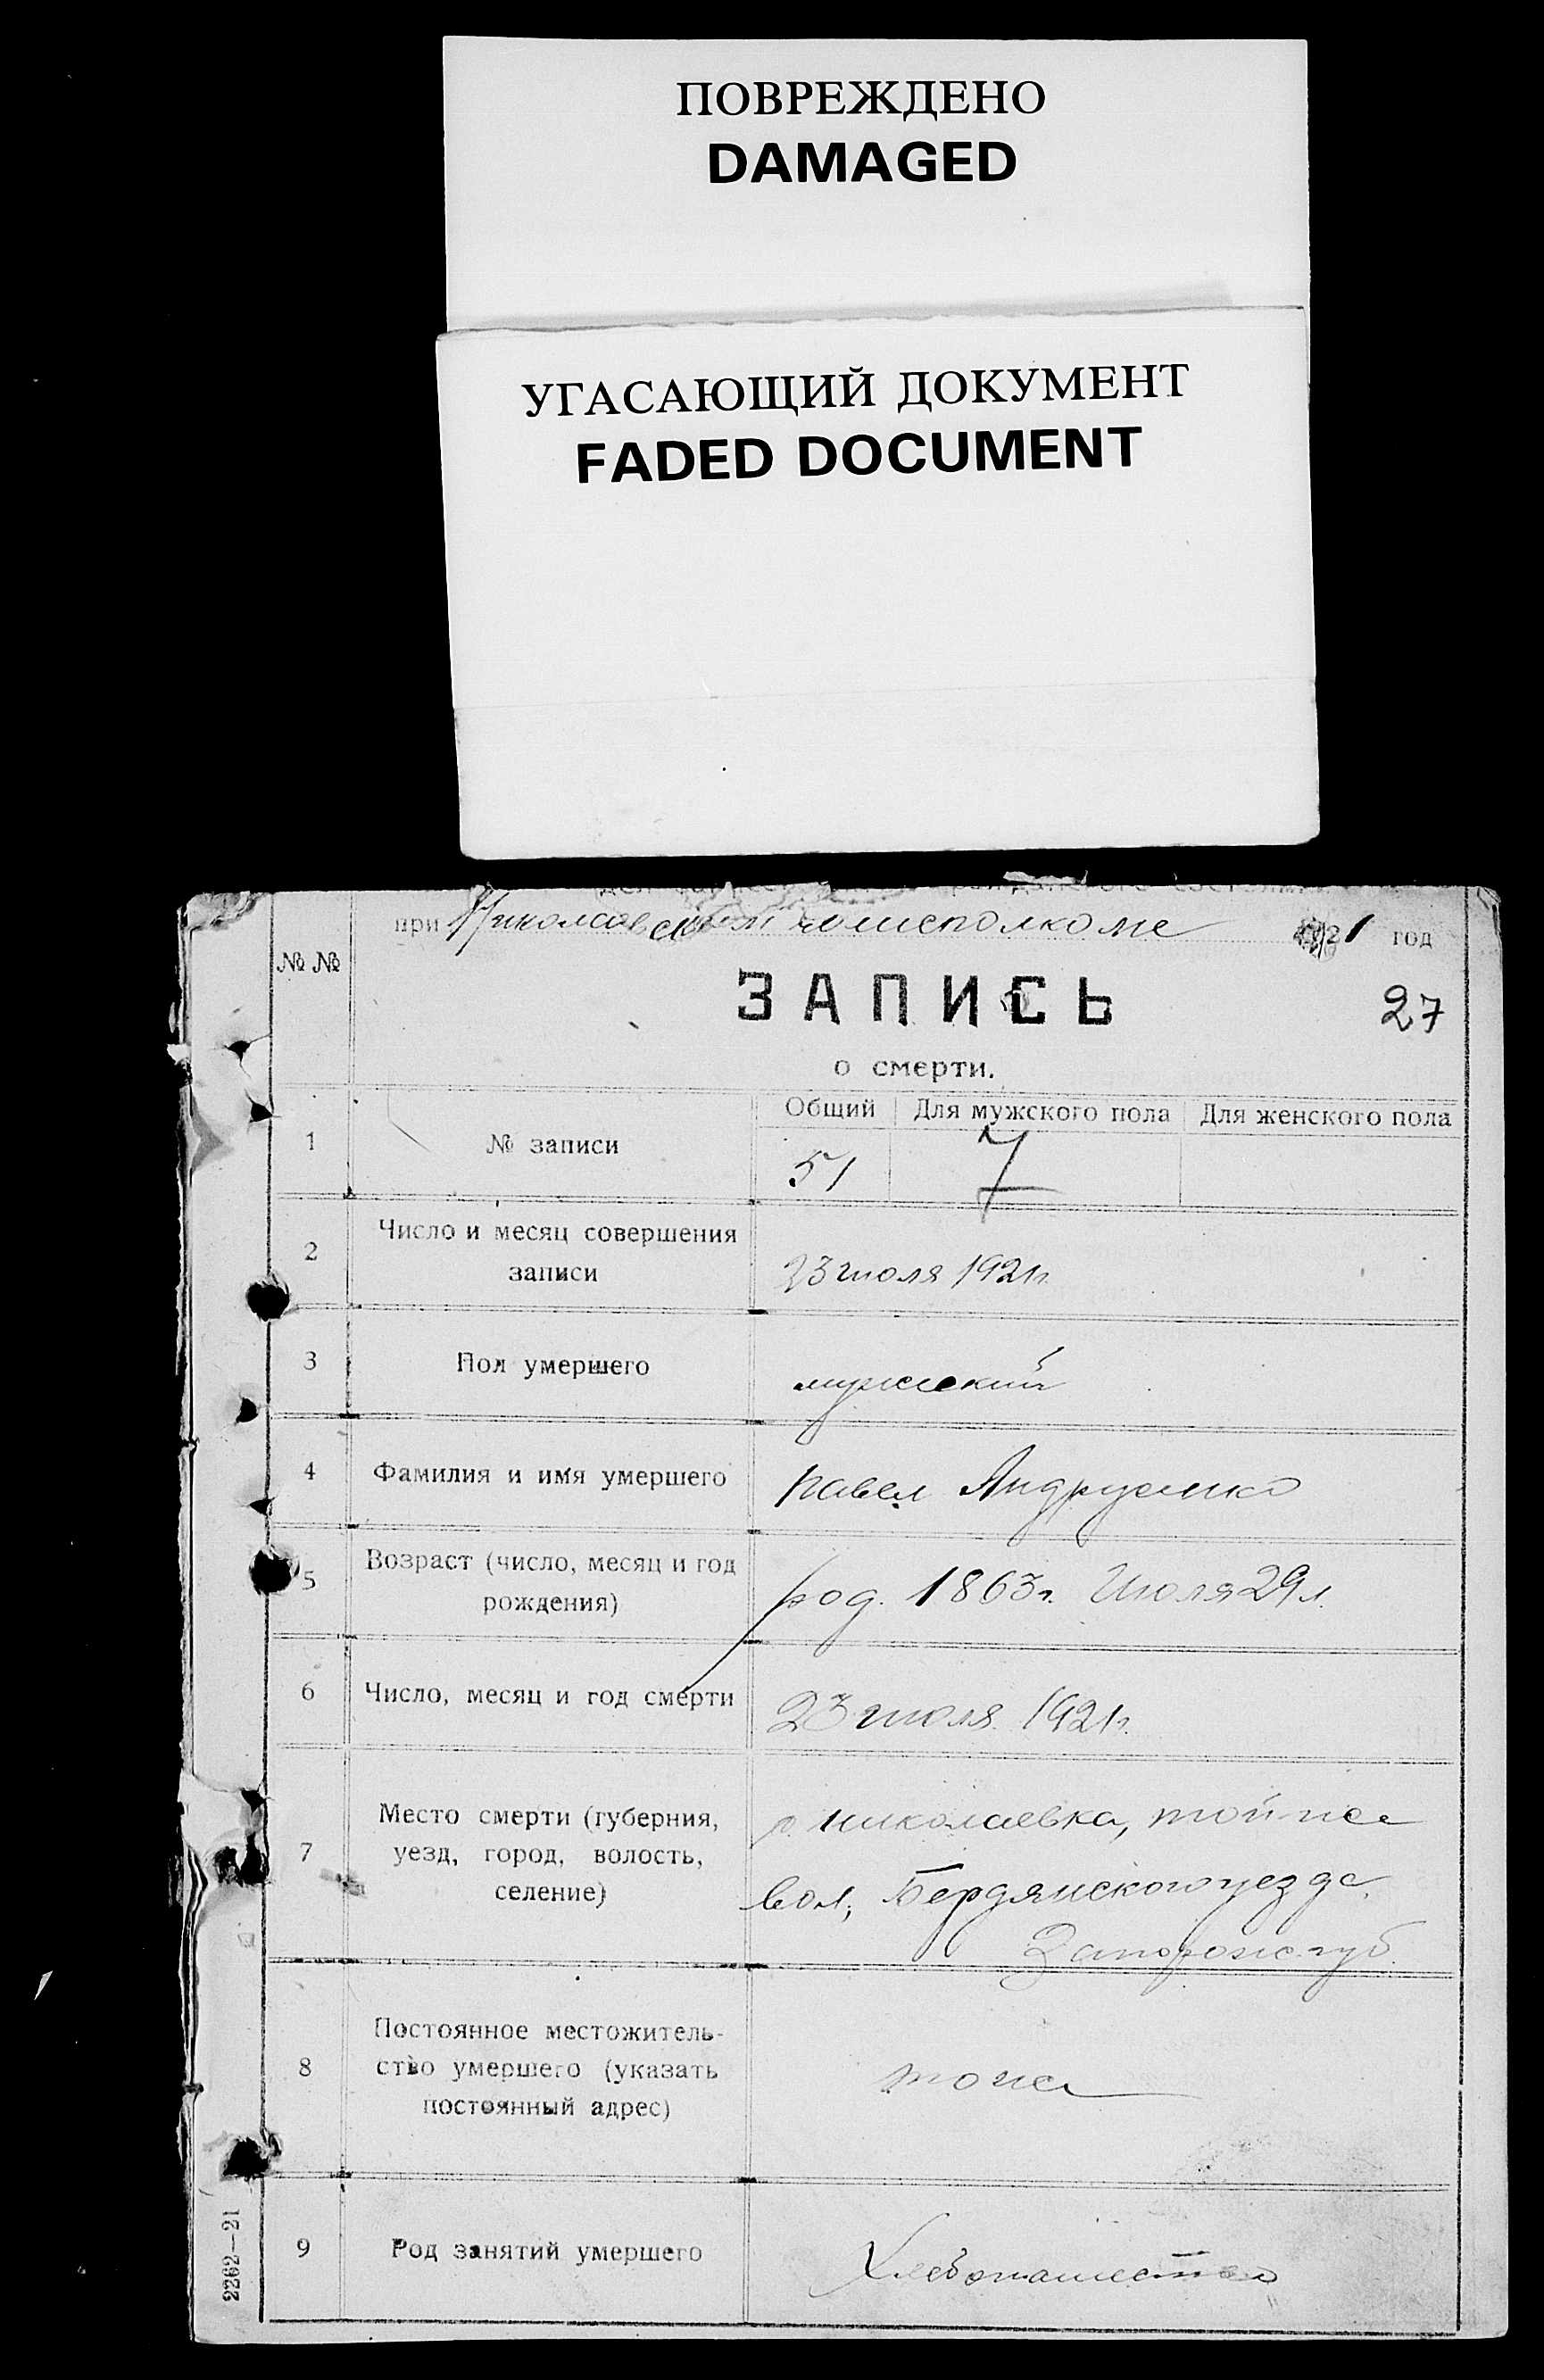 ПОВРЕЖДЕНО
DAMAGED
УГАСАЮЩИЙ ДОКУМЕНТ
FADED DOCUMENT
при Николаевском 1921 год
№ №
ЗАПИСЬ
27
о смерти.
Общий Для мужского пола Для женского пола
1 № записи 51 7
2 Число и месяц совершения
записи 23 июля 1921 г.
3 Пол умершего мужской
4 Фамилия и имя умершего Павел Андрущенко
5 Возраст (число, месяц и год
рождения) род. 1863 г. Июля 29
6 Число, месяц и год смерти 23 июля 1921 г.
7 Место смерти (губерния,
уезд, город, волость,
селение)
с. Николаевка, той-же
вол, Бердянского уезда
Запорож. губ.
8 Постоянное местожитель-
ство умершего (указать
постоянный адрес)
тоже
9 Род занятий умершего Хлебопашество
2262—21